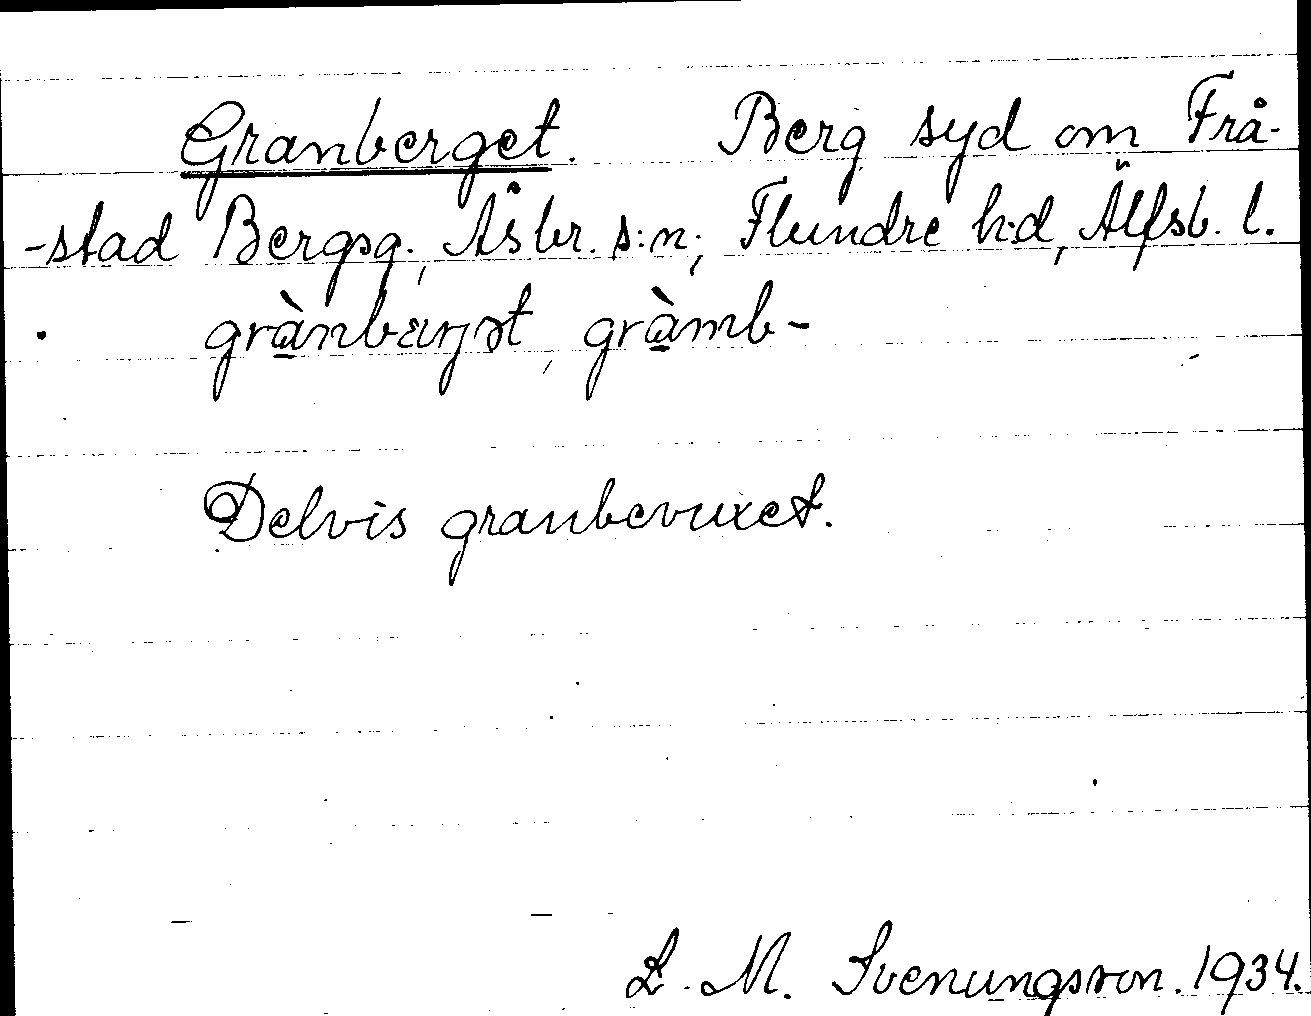 Granberget. Berg syd om Frå-
-stad Bergsg., Åsbr. s:n, Flundre h:d, Älfsb. l.
grànbærjət, gràmb-
Delvis granbevuxet.
L. M. Svenungsson. 1934.